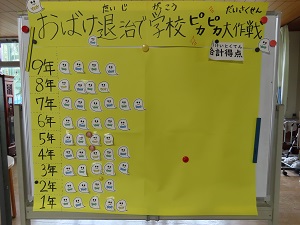 だいじ がっこう だいさくせん
おばけ退治で学校ピカピカ大作戦
ごうけいとくてん
合計得点
9年
8年
7年
6年
5年
4年
3年
2年
1年